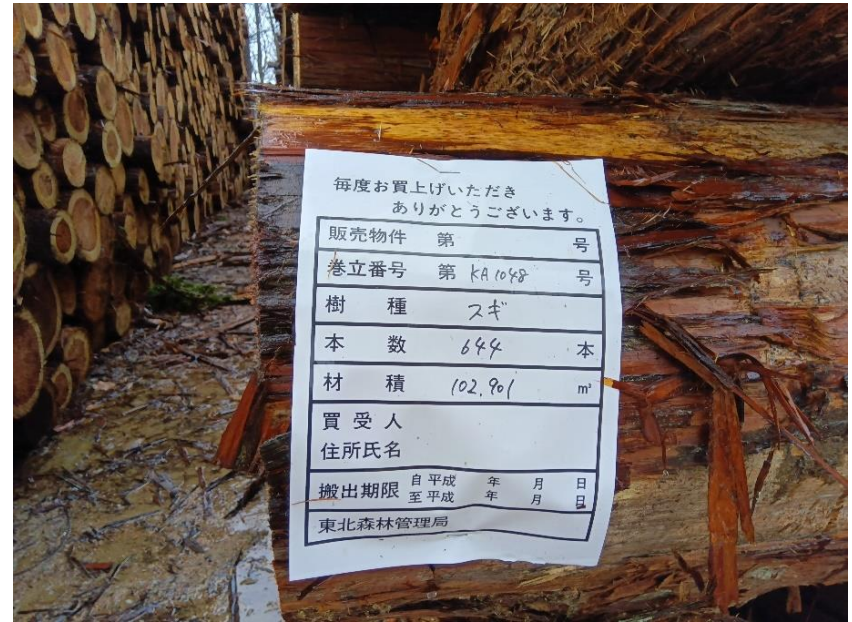 毎度お買上げいただき
ありがとうございます。
販売物件 第 号
巻立番号 第 KA1048 号
樹種 スギ
本数 644 本
材積 102.901 m³
買受人
住所氏名
搬出期限 自平成 年 月 日
至平成 年 月 日
東北森林管理局